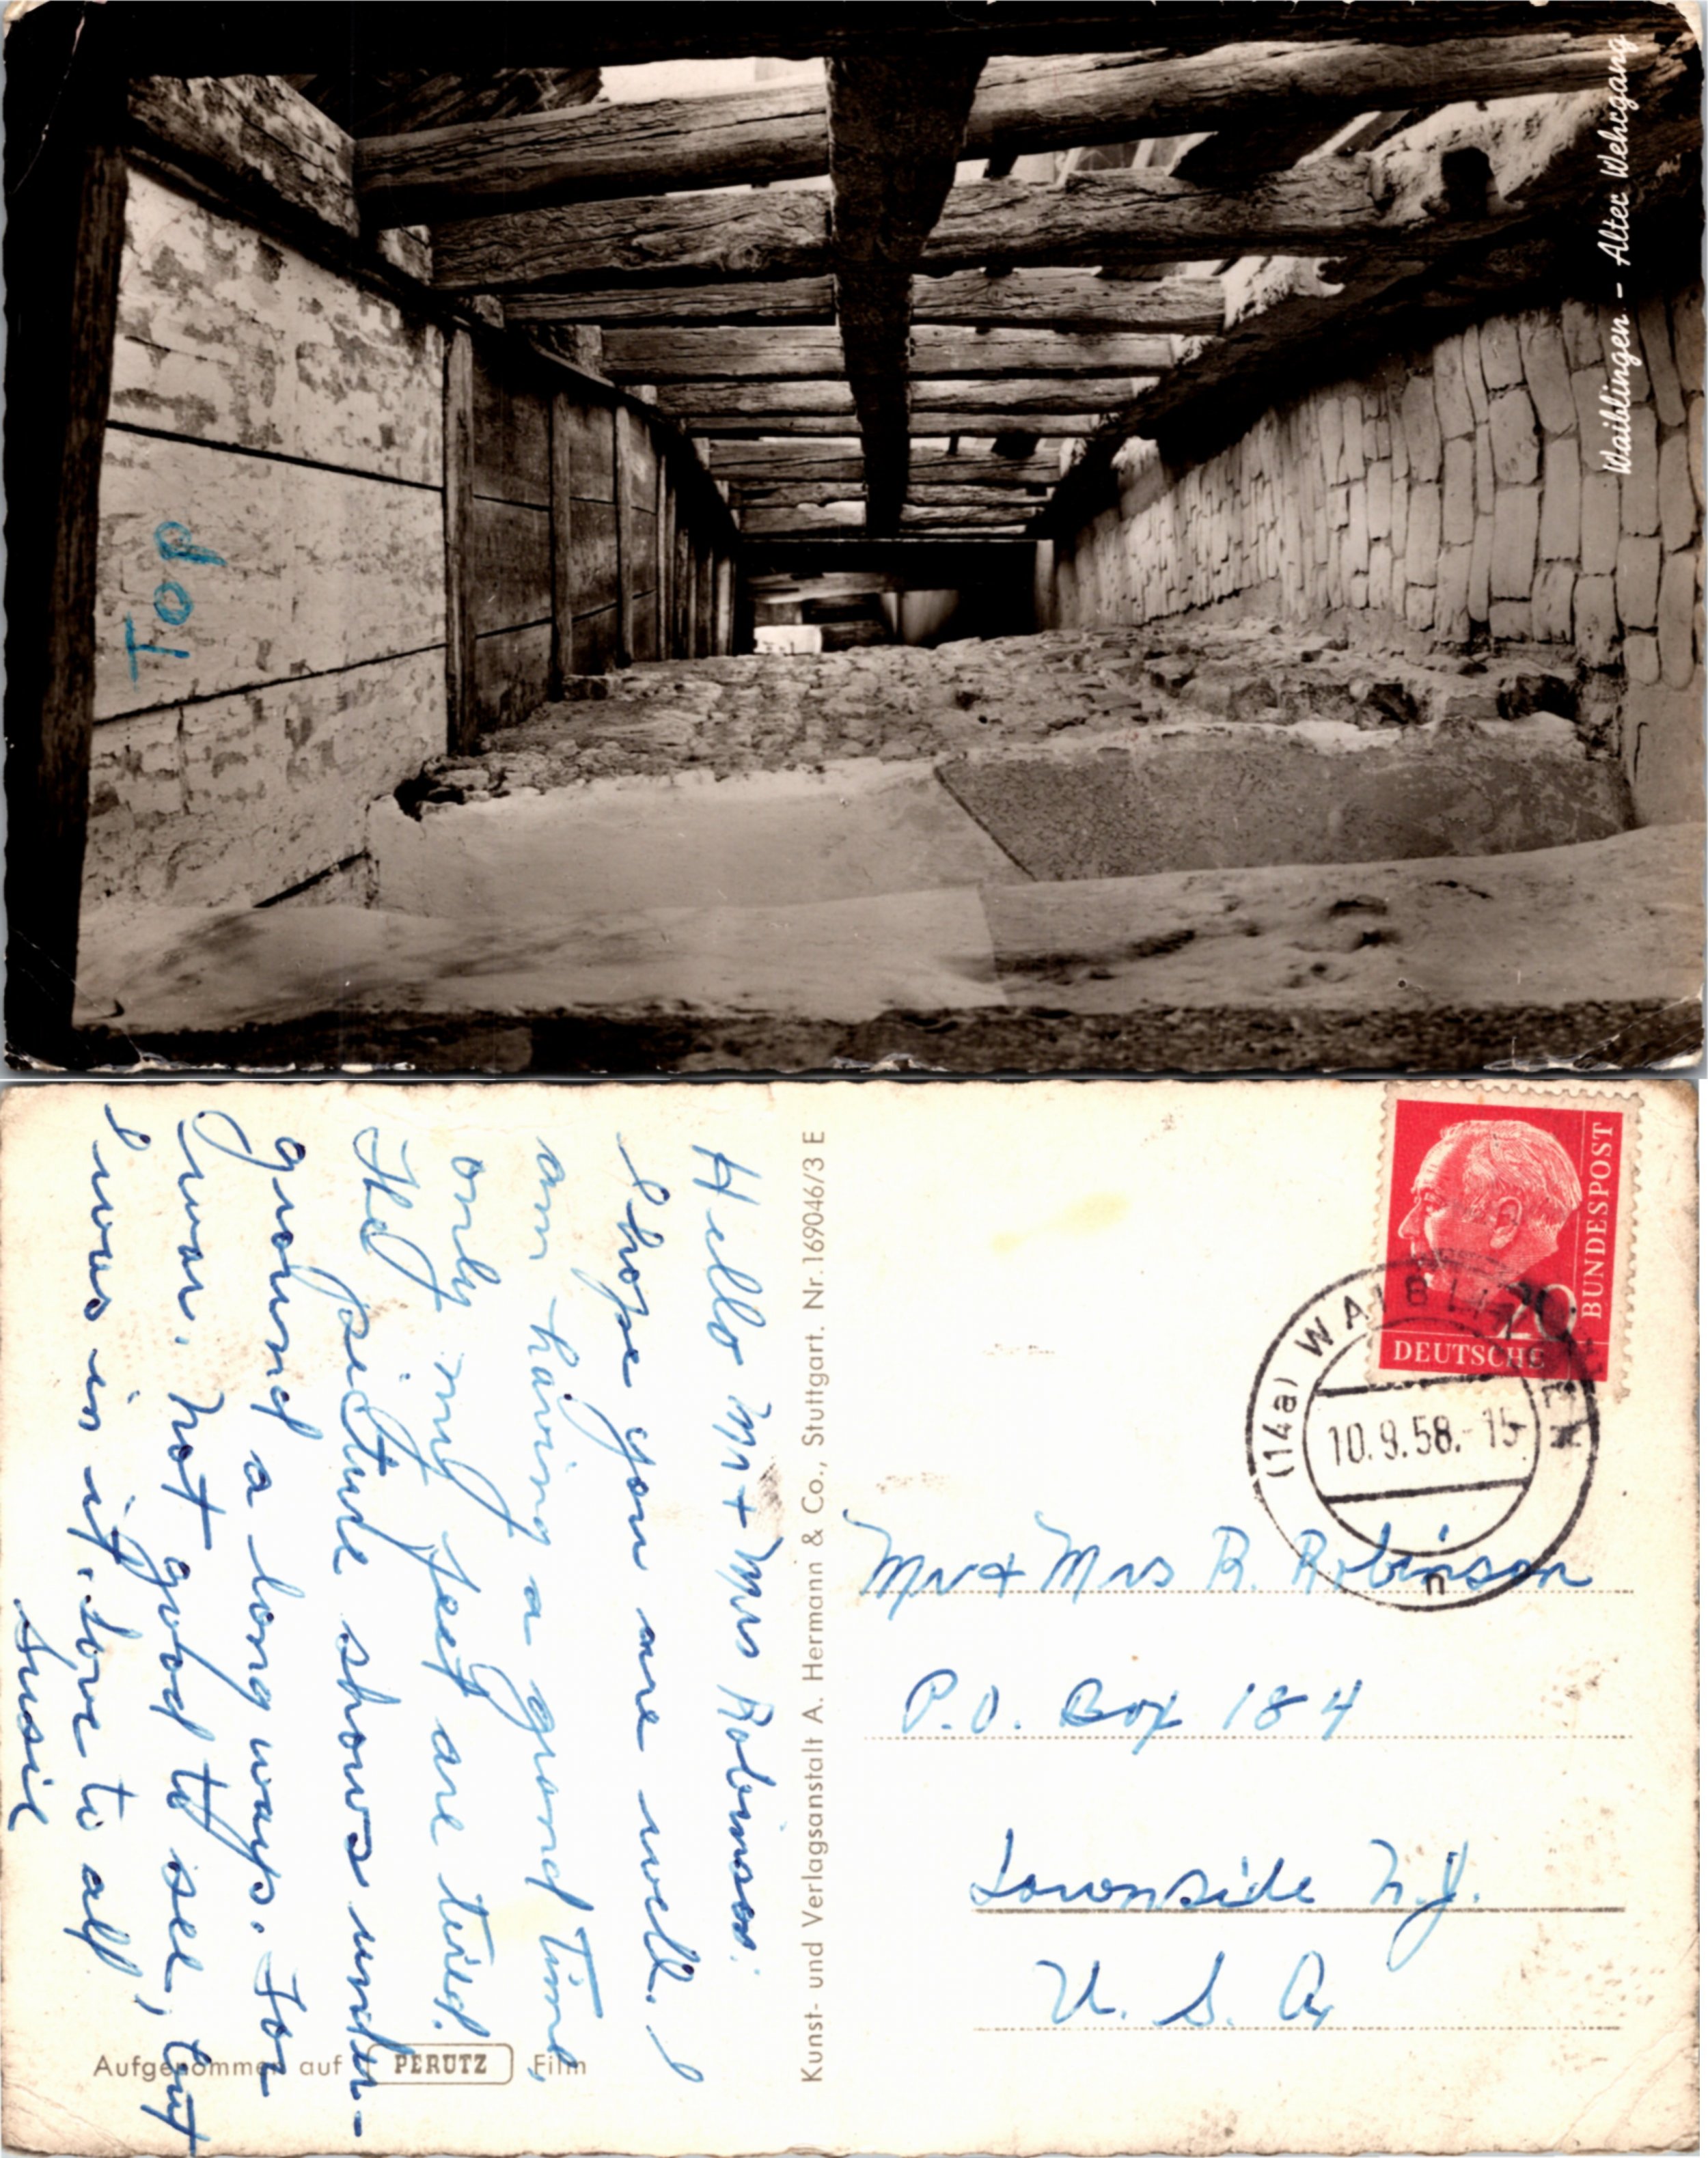 Waiblingen - Alter Wehrgang
Top
Hello Mr + Mrs Robinson:
I hope you are well. I
am having a grand time,
only my feet are tired.
The picture shows under-
ground a long ways. For
war. Not good to see, but
I was in it. Love to all
Susie
Aufgenommen auf PERUTZ Film
Kunst- und Verlagsanstalt A. Hermann & Co., Stuttgart. Nr. 169046/3 E
DEUTSCHE
BUNDESPOST
20
(14a) WAIBLINGEN
10.9.58.-15
n
Mr + Mrs R. Robinson
P.O. Box 184
Lawnside N.J.
U. S. A.